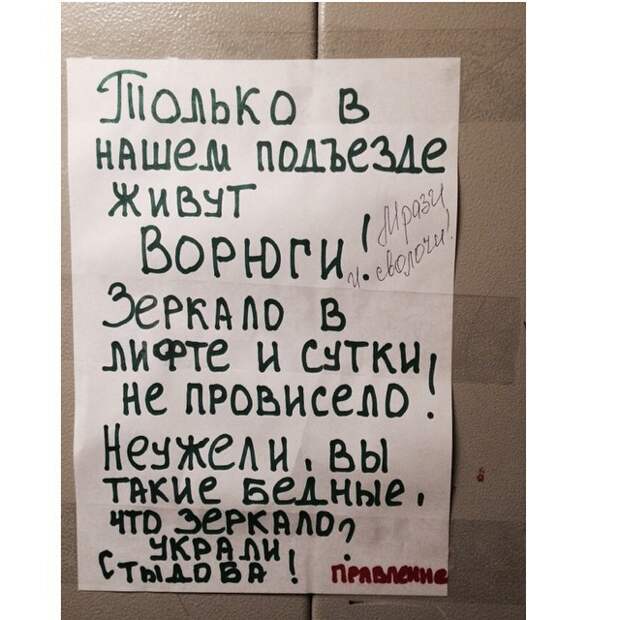 Только в
нашем подъезде
живут
Ворюги!
Мрази
и сволочи!
Зеркало в
лифте и сутки,
не провисело!
Неужели, вы
такие бедные,
что зеркало?
украли
Стыдоба!
Правление